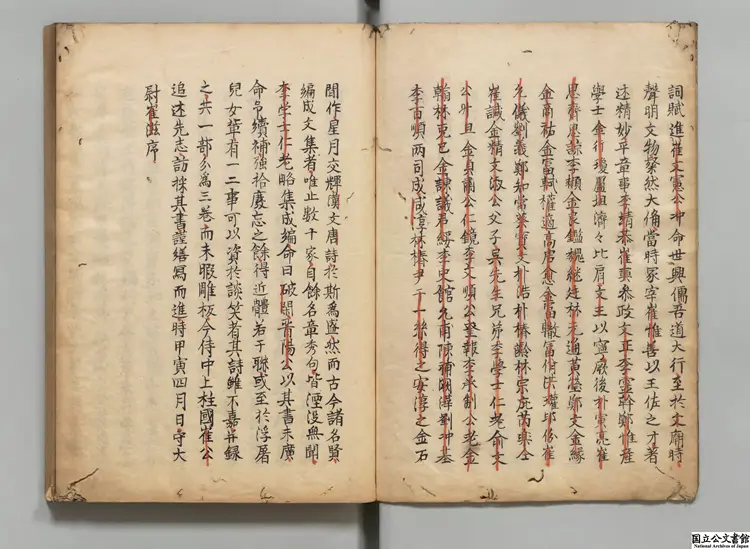 詞賦進崔文憲公冲命世興儒吾道大行至於文廟時
聲明文物粲然大備當時冢宰崔惟善以王佐之才著
述精妙平章事李靖恭崔奭參政文正李靈幹鄭惟産
學士金行瓊盧坦濟々比肩文王以寧厥後朴寅亮崔
思齊思諒李顗金良鑑魏継廷林元通黃瑩鄭文金緣
金商祐金富軾權適高唐愈金富轍富佾洪瓘印份崔
允儀劉羲鄭知常蔡寶文朴浩朴椿齡林宗庇芮樂仝
崔諴金精文淑公父子吳先生兄弟李學士仁老俞文
公升旦金貞肅公仁鏡李文順公奎報李承制公老金
翰林克己金諫議君綏李史館允甫陳補闕澕劉冲基
李百順両司成咸淳林椿尹于一孫得之安淳之金石
間作星月交輝漢文唐詩於斯爲盛然而古今諸名賢
編成文集者唯止數十家自餘名章秀句皆湮沒無聞
李學士仁老略集成編命曰破閑晉陽公以其書未廣
命予續補强拾廢忘之餘得近體若干聯或至於浮屠
兒女輩有一二事可以資於談笑者其詩雖不嘉幷録
之共一部分爲三卷而未暇雕板今侍中上柱國崔公
追述先志訪採其書謹繕寫而進時甲寅四月日守大
尉崔滋序
国立公文書館
National Archives of Japan